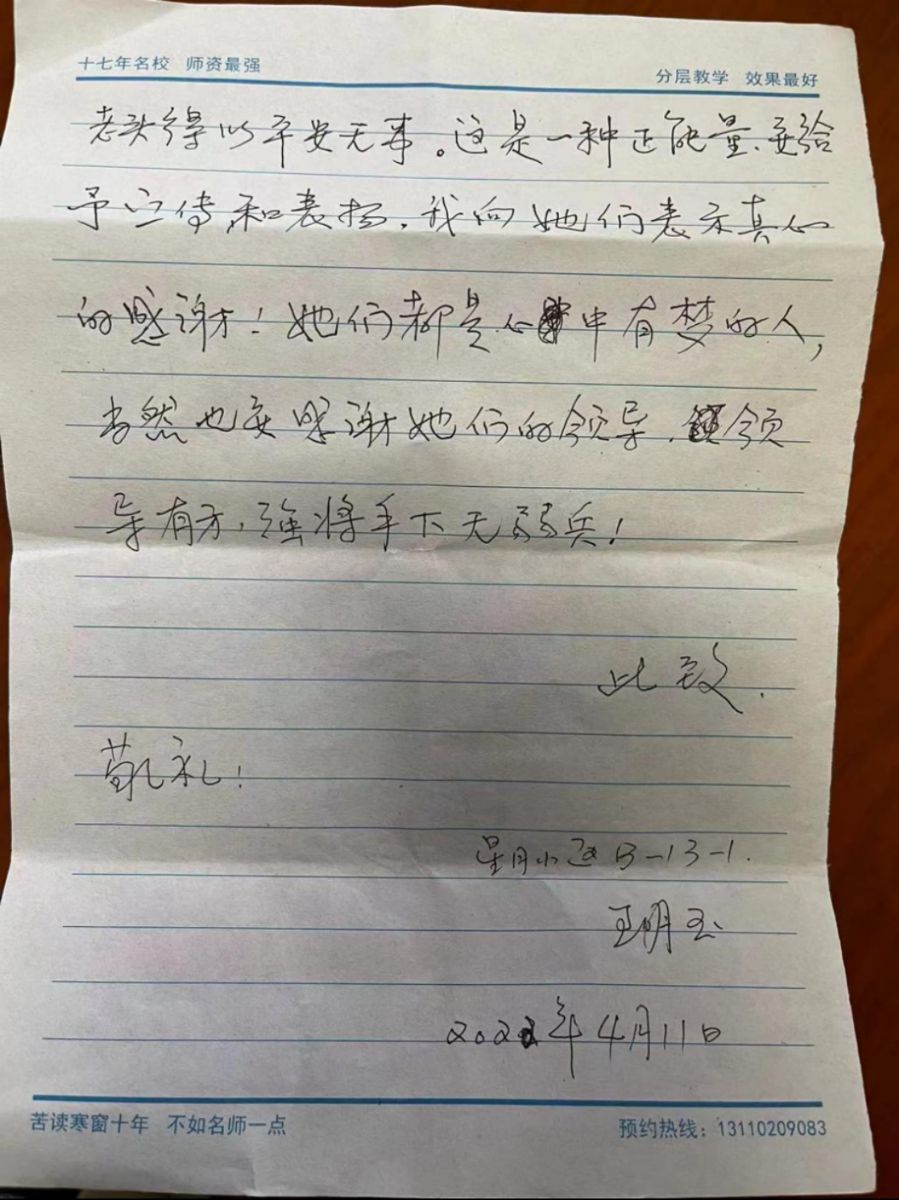 十七年名校 师资最强
分层教学 效果最好
老头得以平安无事。这是一种正能量、要给
予宣传和表扬，我向她们表示真心
的感谢！她们都是心中有梦的人，
当然也要感谢她们的领导，领
导有方，强将手下无弱兵！
此致
敬礼！
星月小区B-13-1.
王明玉
2022年4月11日
苦读寒窗十年 不如名师一点
预约热线：13110209083